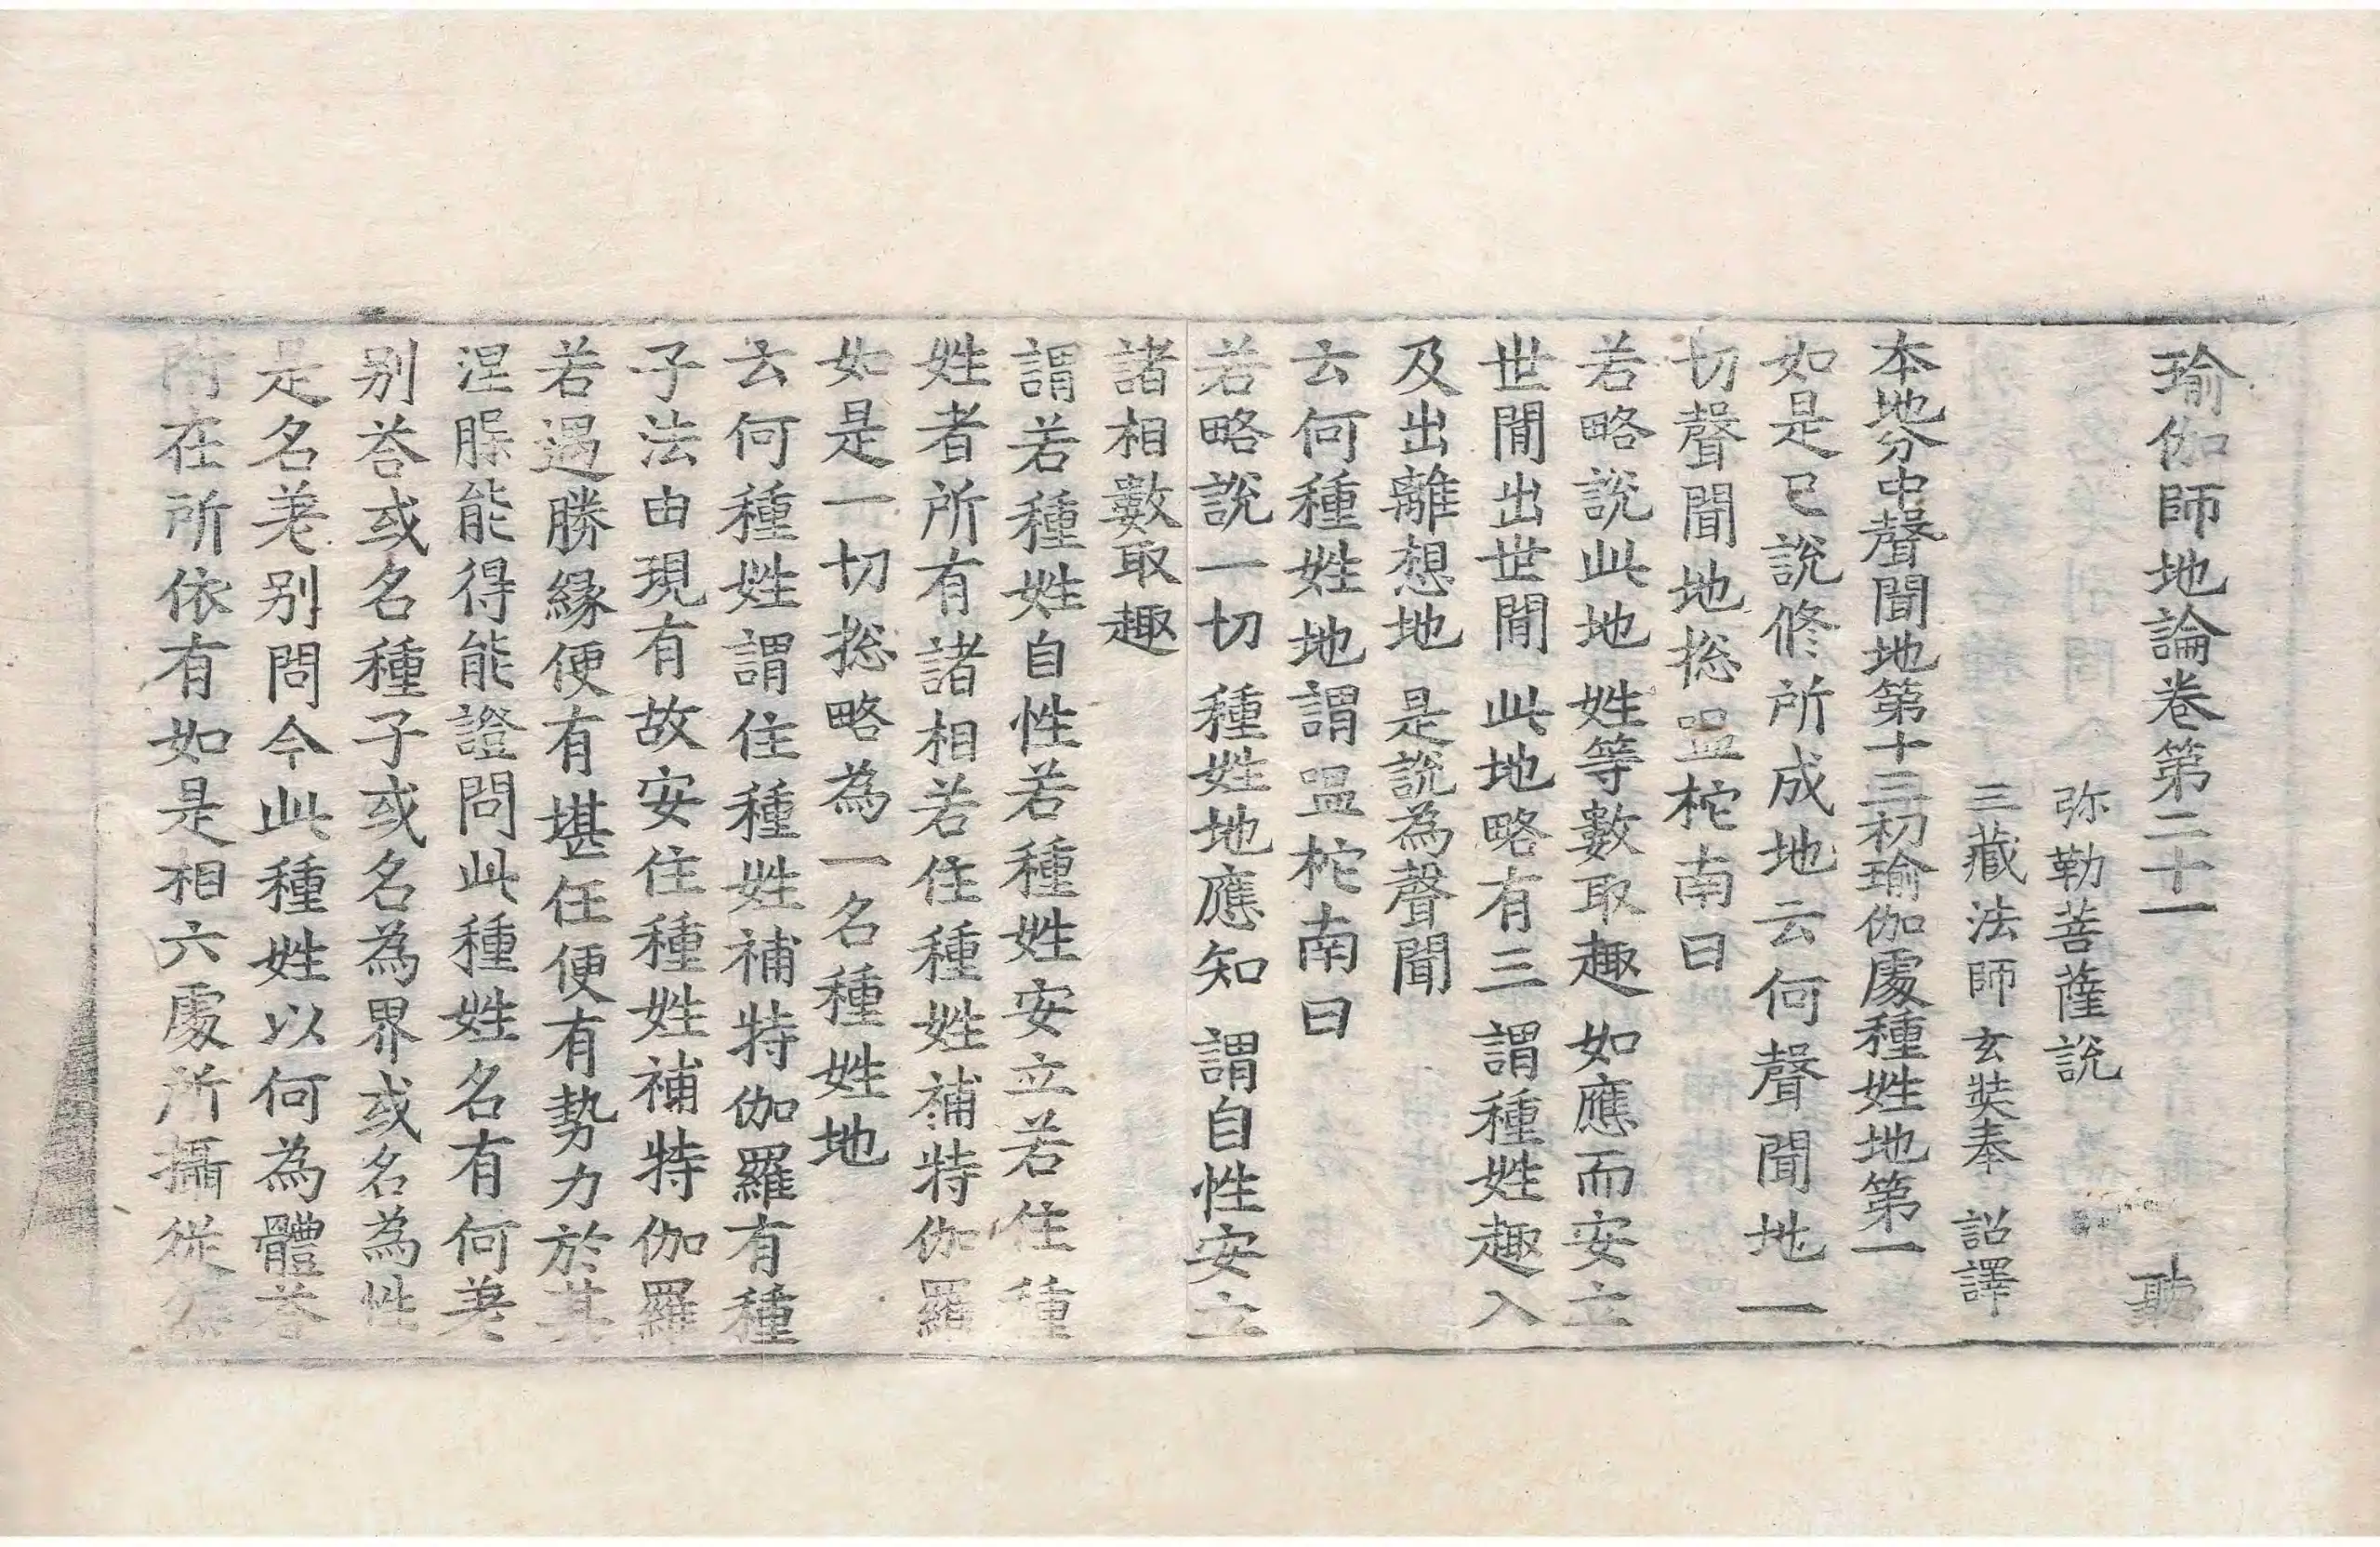 瑜伽師地論卷第二十一 聽
弥勒菩薩說
三藏法師玄奘奉 詔譯
本地分中聲聞地第十三初瑜伽處種姓地第一
如是已說修所成地云何聲聞地一
切聲聞地揔嗢柁南曰
若略說此地 姓等數取趣 如應而安立
世間出世間 此地略有三 謂種姓趣入
及出離想地 是說為聲聞
云何種姓地謂嗢柁南曰
若略說一切 種姓地應知 謂自性安立
諸相數取趣
謂若種姓自性若種姓安立若住種
姓者所有諸相若住種姓補特伽羅
如是一切揔略為一名種姓地
云何種姓謂住種姓補特伽羅有種
子法由現有故安住種姓補特伽羅
若遇勝緣便有堪任便有勢力於其
涅槃能得能證問此種姓名有何差
別荅或名種子或名為界或名為性
是名差別問今此種姓以何為體荅
附在所依有如是相六處所攝從無